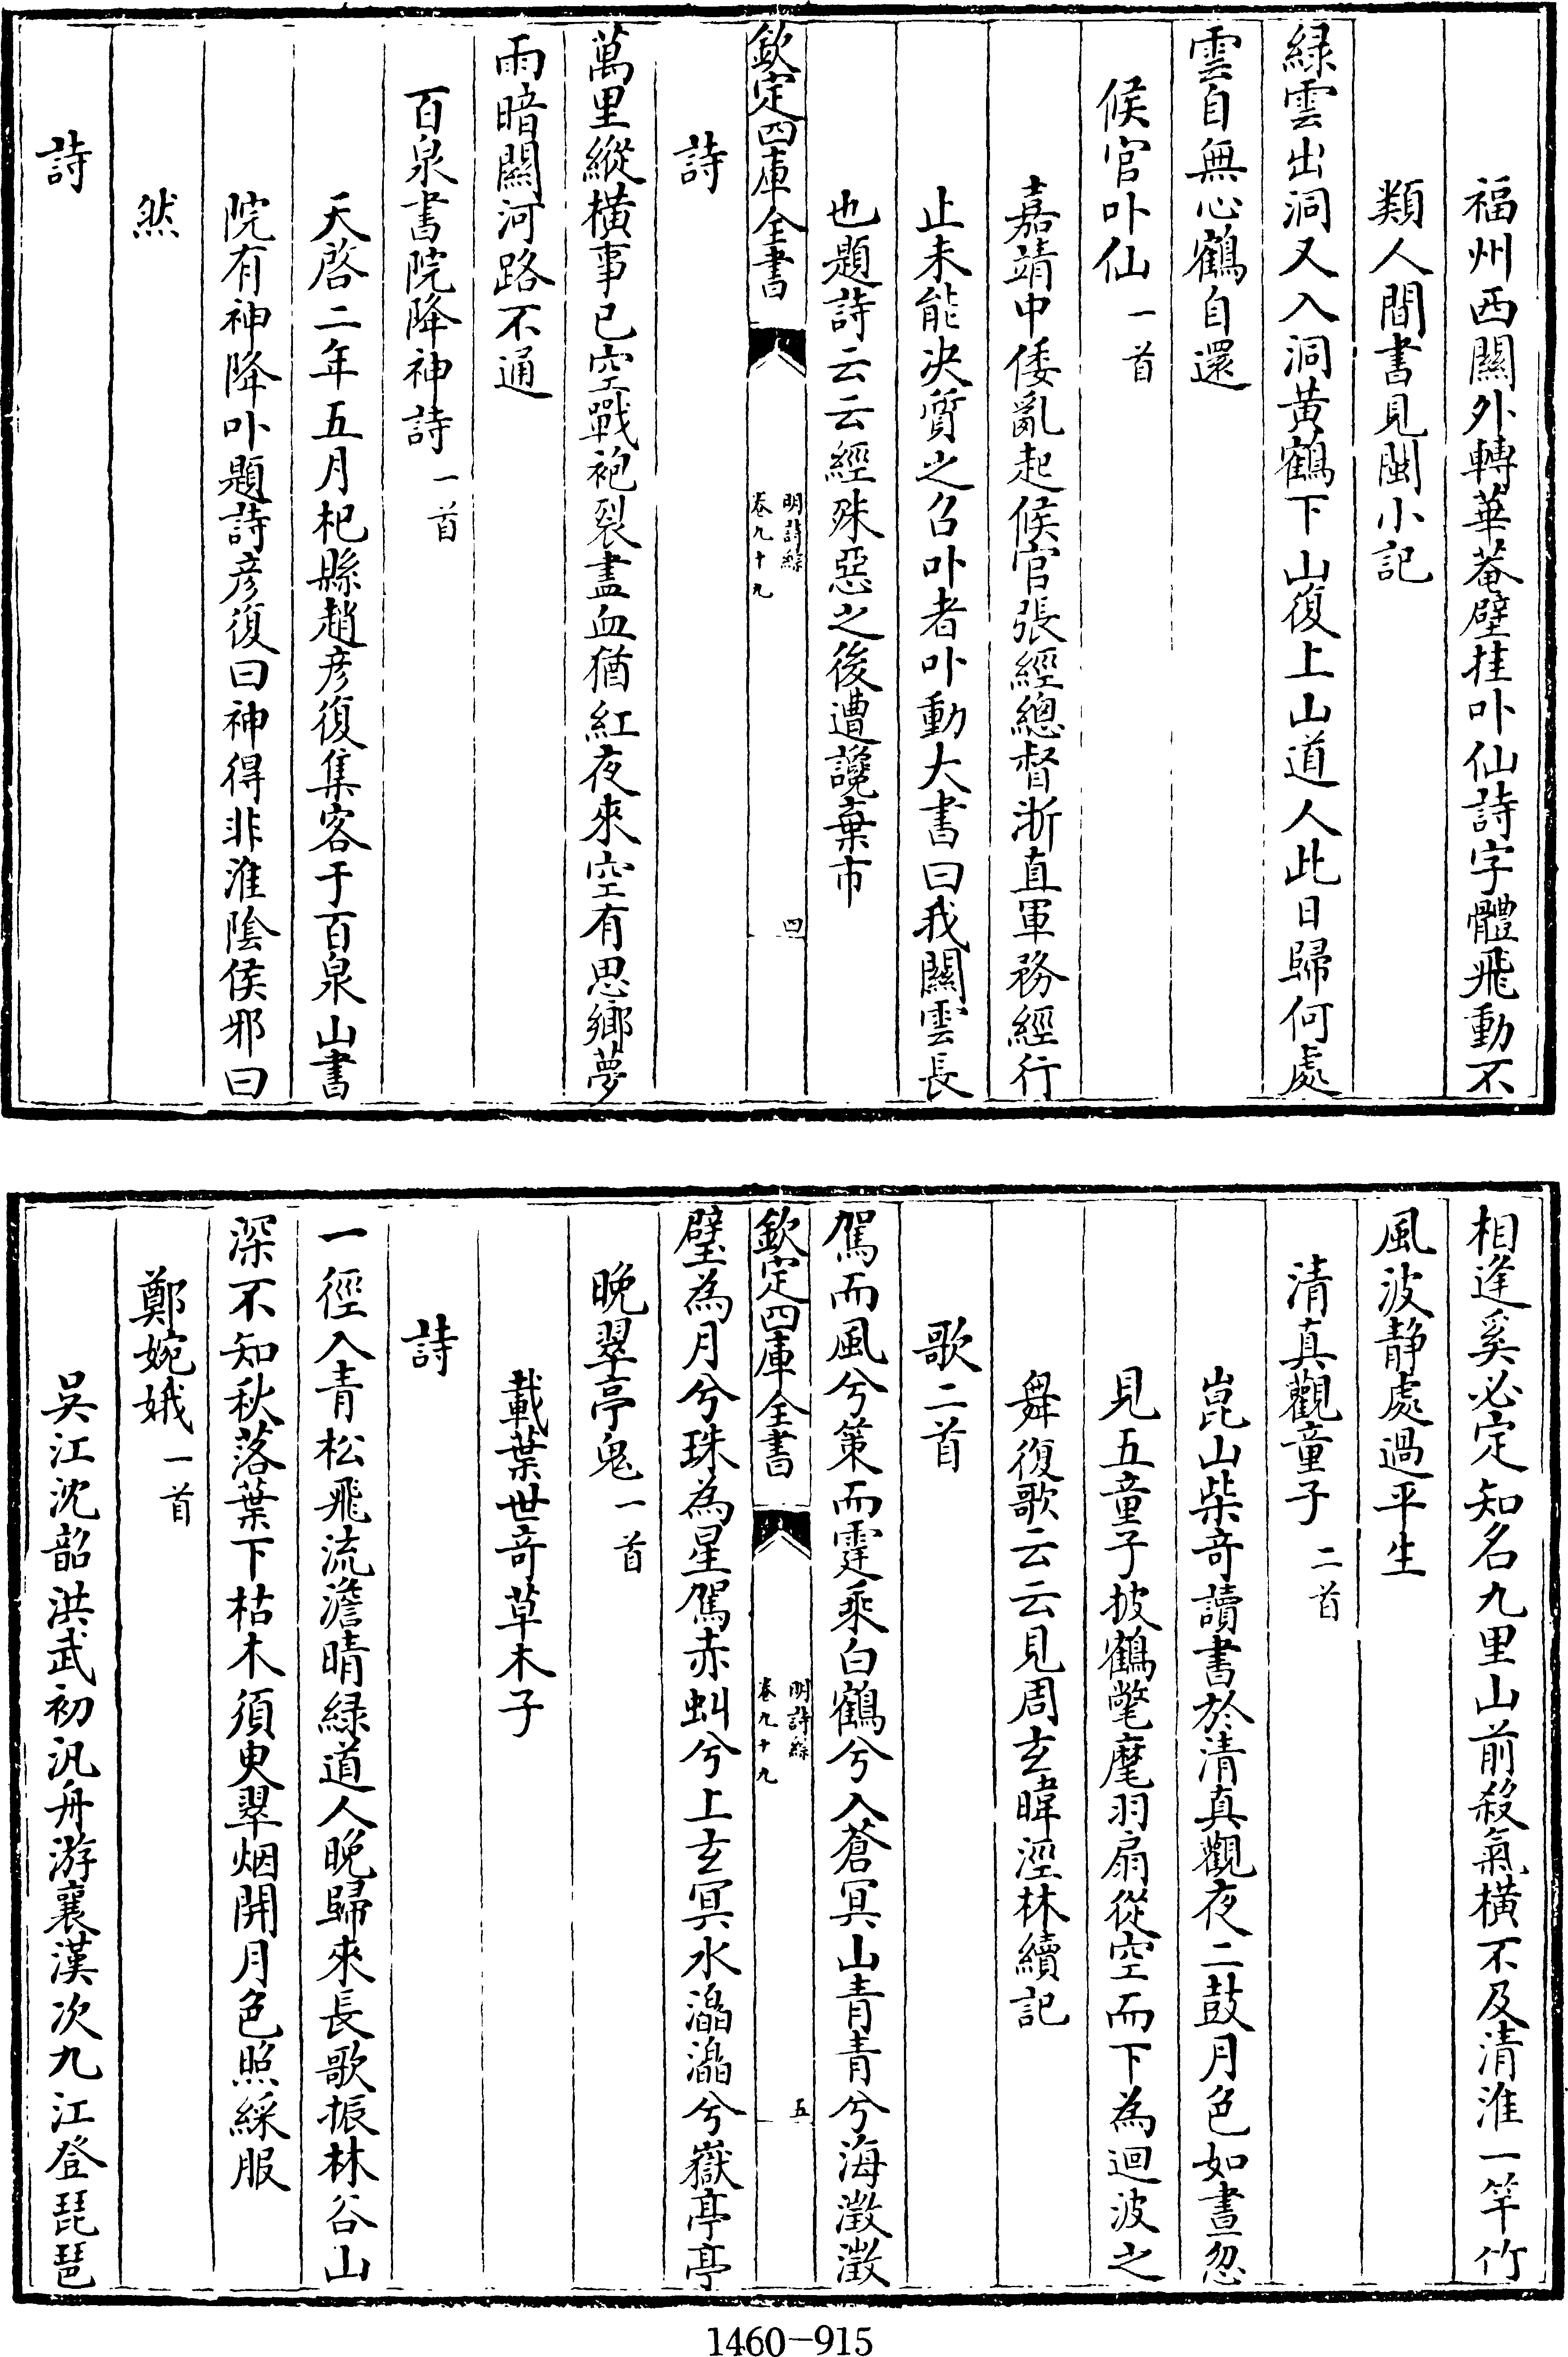 福州西關外轉華菴壁挂卟仙詩字體飛動不
類人間書見閩小記
緑雲出洞又入洞黃鶴下山復上山道人此日歸何處
雲自無心鶴自還
候官卟仙一首
嘉靖中倭亂起候官張經總督浙直軍務經行
止未能决質之召卟者卟動大書曰我關雲長
也題詩云云經殊惡之後遭讒棄市
欽定四庫全書
明詩綜
卷九十九
四
詩
萬里縱橫事已空戰袍裂盡血猶紅夜來空有思鄉夢
雨暗關河路不通
百泉書院降神詩一首
天啓二年五月杞縣趙彦復集客于百泉山書
院有神降卟題詩彦復曰神得非淮陰侯邪曰
然
詩
相逢奚必定知名九里山前殺氣横不及清淮一竿竹
風波静處過平生
清真觀童子二首
崑山柴竒讀書於清真觀夜二鼓月色如晝忽
見五童子披鶴氅麾羽扇從空而下為迴波之
舞復歌云云見周玄暐涇林續記
歌二首
駕而風兮策而霆乘白鶴兮入蒼冥山青青兮海澂澂
欽定四庫全書
明詩綜
卷九十九
五
璧為月兮珠為星駕赤虬兮上玄冥水灂灂兮嶽亭亭
晚翠亭鬼一首
載葉世竒草木子
詩
一徑入青松飛流澹晴緑道人晚歸來長歌振林谷山
深不知秋落葉下枯木須臾翠烟開月色照綵服
鄭婉娥一首
吳江沈韶洪武初汎舟游襄漢次九江登琵琶
1460-915